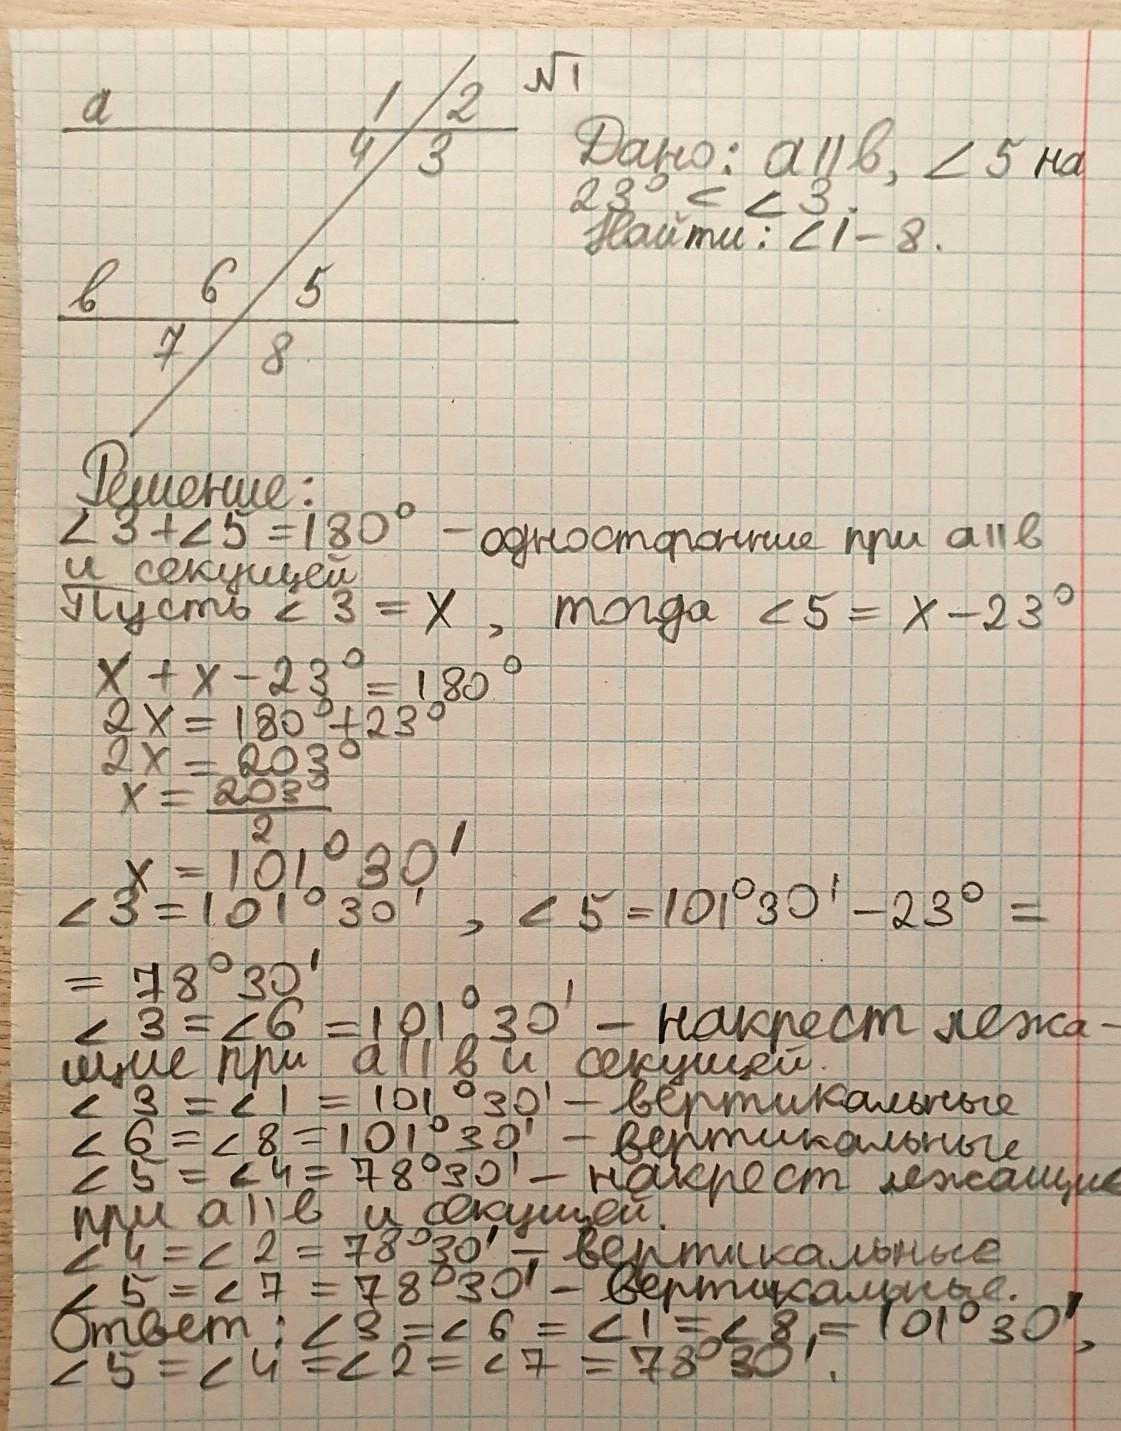 №1
а 1 2
4 3
Дано: а || в, ∠5 на
23° < ∠3.
Найти: ∠1-8.
в 6 5
7 8
Решение:
∠3+∠5=180° - односторонние при а || в
и секущей
Пусть ∠3 = х, тогда ∠5 = х-23°
х + х - 23° = 180°
2х = 180°+23°
2х = 203°
х = 203°/2
х = 101°30'
∠3=101°30', ∠5=101°30'-23° =
= 78°30'
∠3=∠6=101°30' - накрест лежа-
щие при а || в и секущей.
∠3=∠1=101°30' - вертикальные
∠6=∠8=101°30' - вертикальные
∠5=∠4=78°30' - накрест лежащие
при а || в и секущей.
∠4=∠2=78°30' - вертикальные
∠5=∠7=78°30' - вертикальные.
Ответ: ∠3=∠6=∠1=∠8=101°30',
∠5=∠4=∠2=∠7=78°30'.